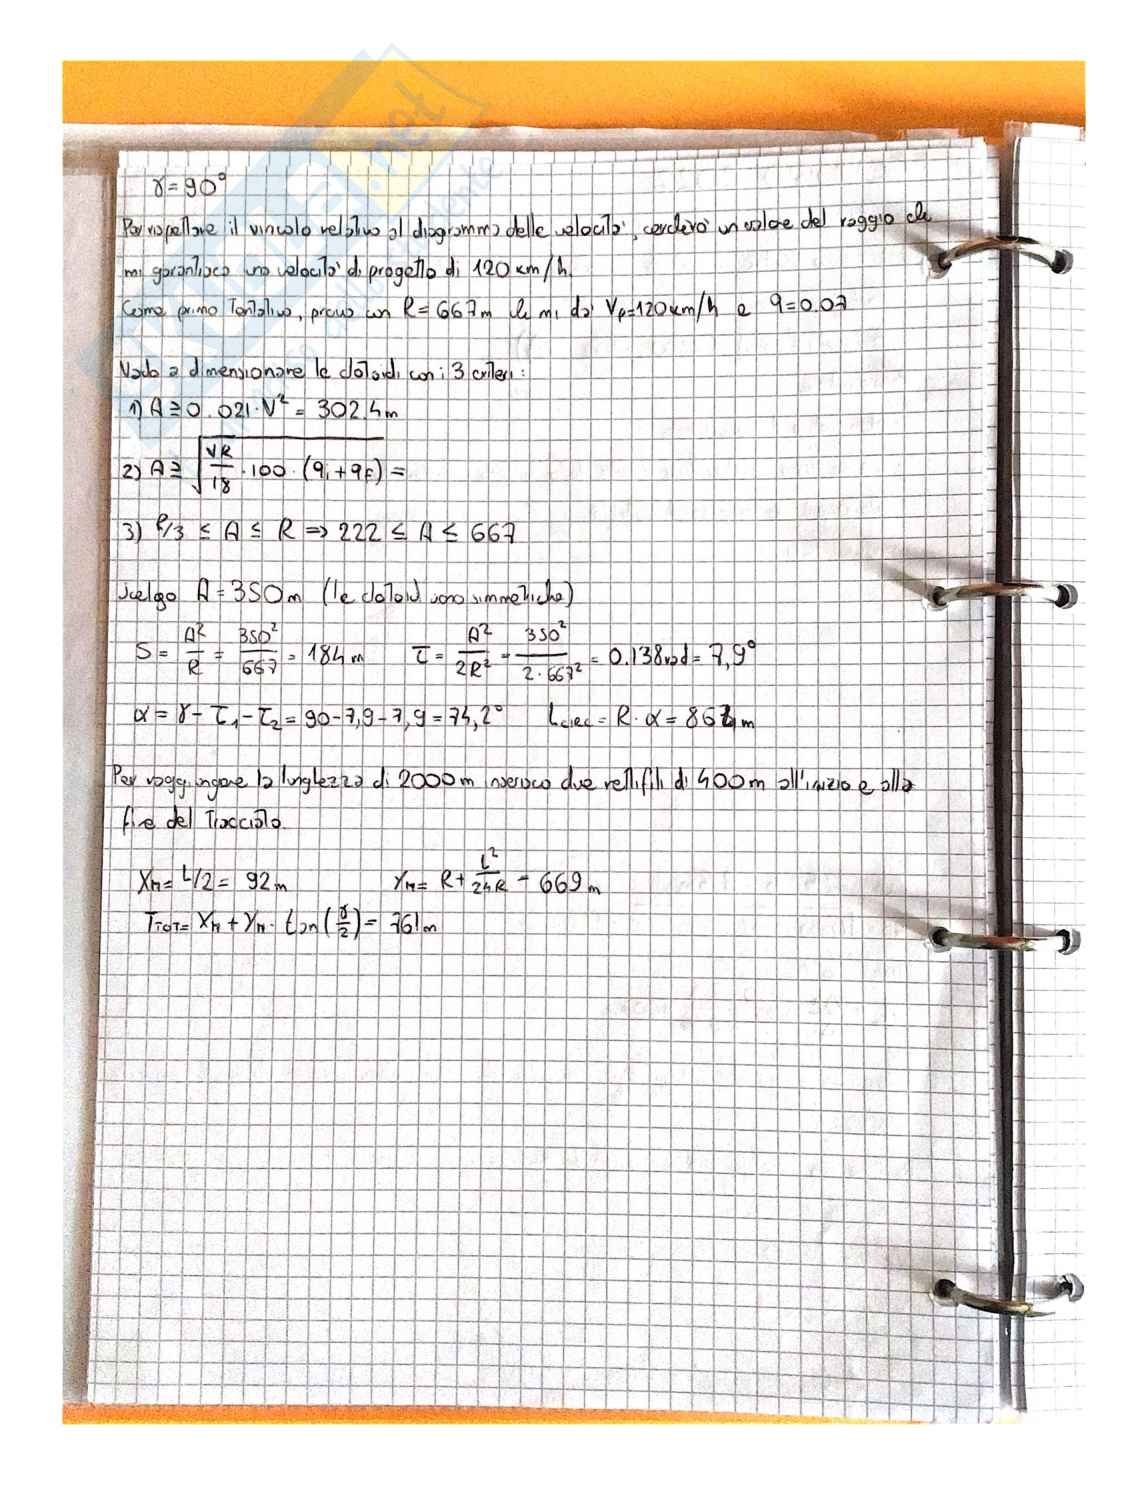 γ = 90°
Per rispettare il vincolo relativo al diagramma delle velocità, cercherò un valore del raggio che
mi garantisca una velocità di progetto di 120 km/h.
Come primo tentativo, provo con R = 667 m che mi dà Vp=120 km/h e q=0.07
Vado a dimensionare le clotoidi con i 3 criteri:
1) A ≥ 0.021·V² = 302.4 m
2) A ≥ √(VR/18 · 100 · (qi + qf)) =
3) R/3 ≤ A ≤ R ⇒ 222 ≤ A ≤ 667
Scelgo A = 350 m (le clotoidi sono simmetriche)
S = A²/R = 350²/667 = 184 m τ = A²/2R² = 350²/2·667² = 0.138 rad = 7,9°
α = γ - τ1 - τ2 = 90 - 7,9 - 7,9 = 74,2° Lcirc = R·α = 864 m
Per raggiungere la lunghezza di 2000 m inserisco due rettifili di 400 m all'inizio e alla
fine del tracciato.
XM = L/2 = 92 m YM = R + L²/24R = 669 m
TTOT = XM + YM · tan(γ/2) = 761 m